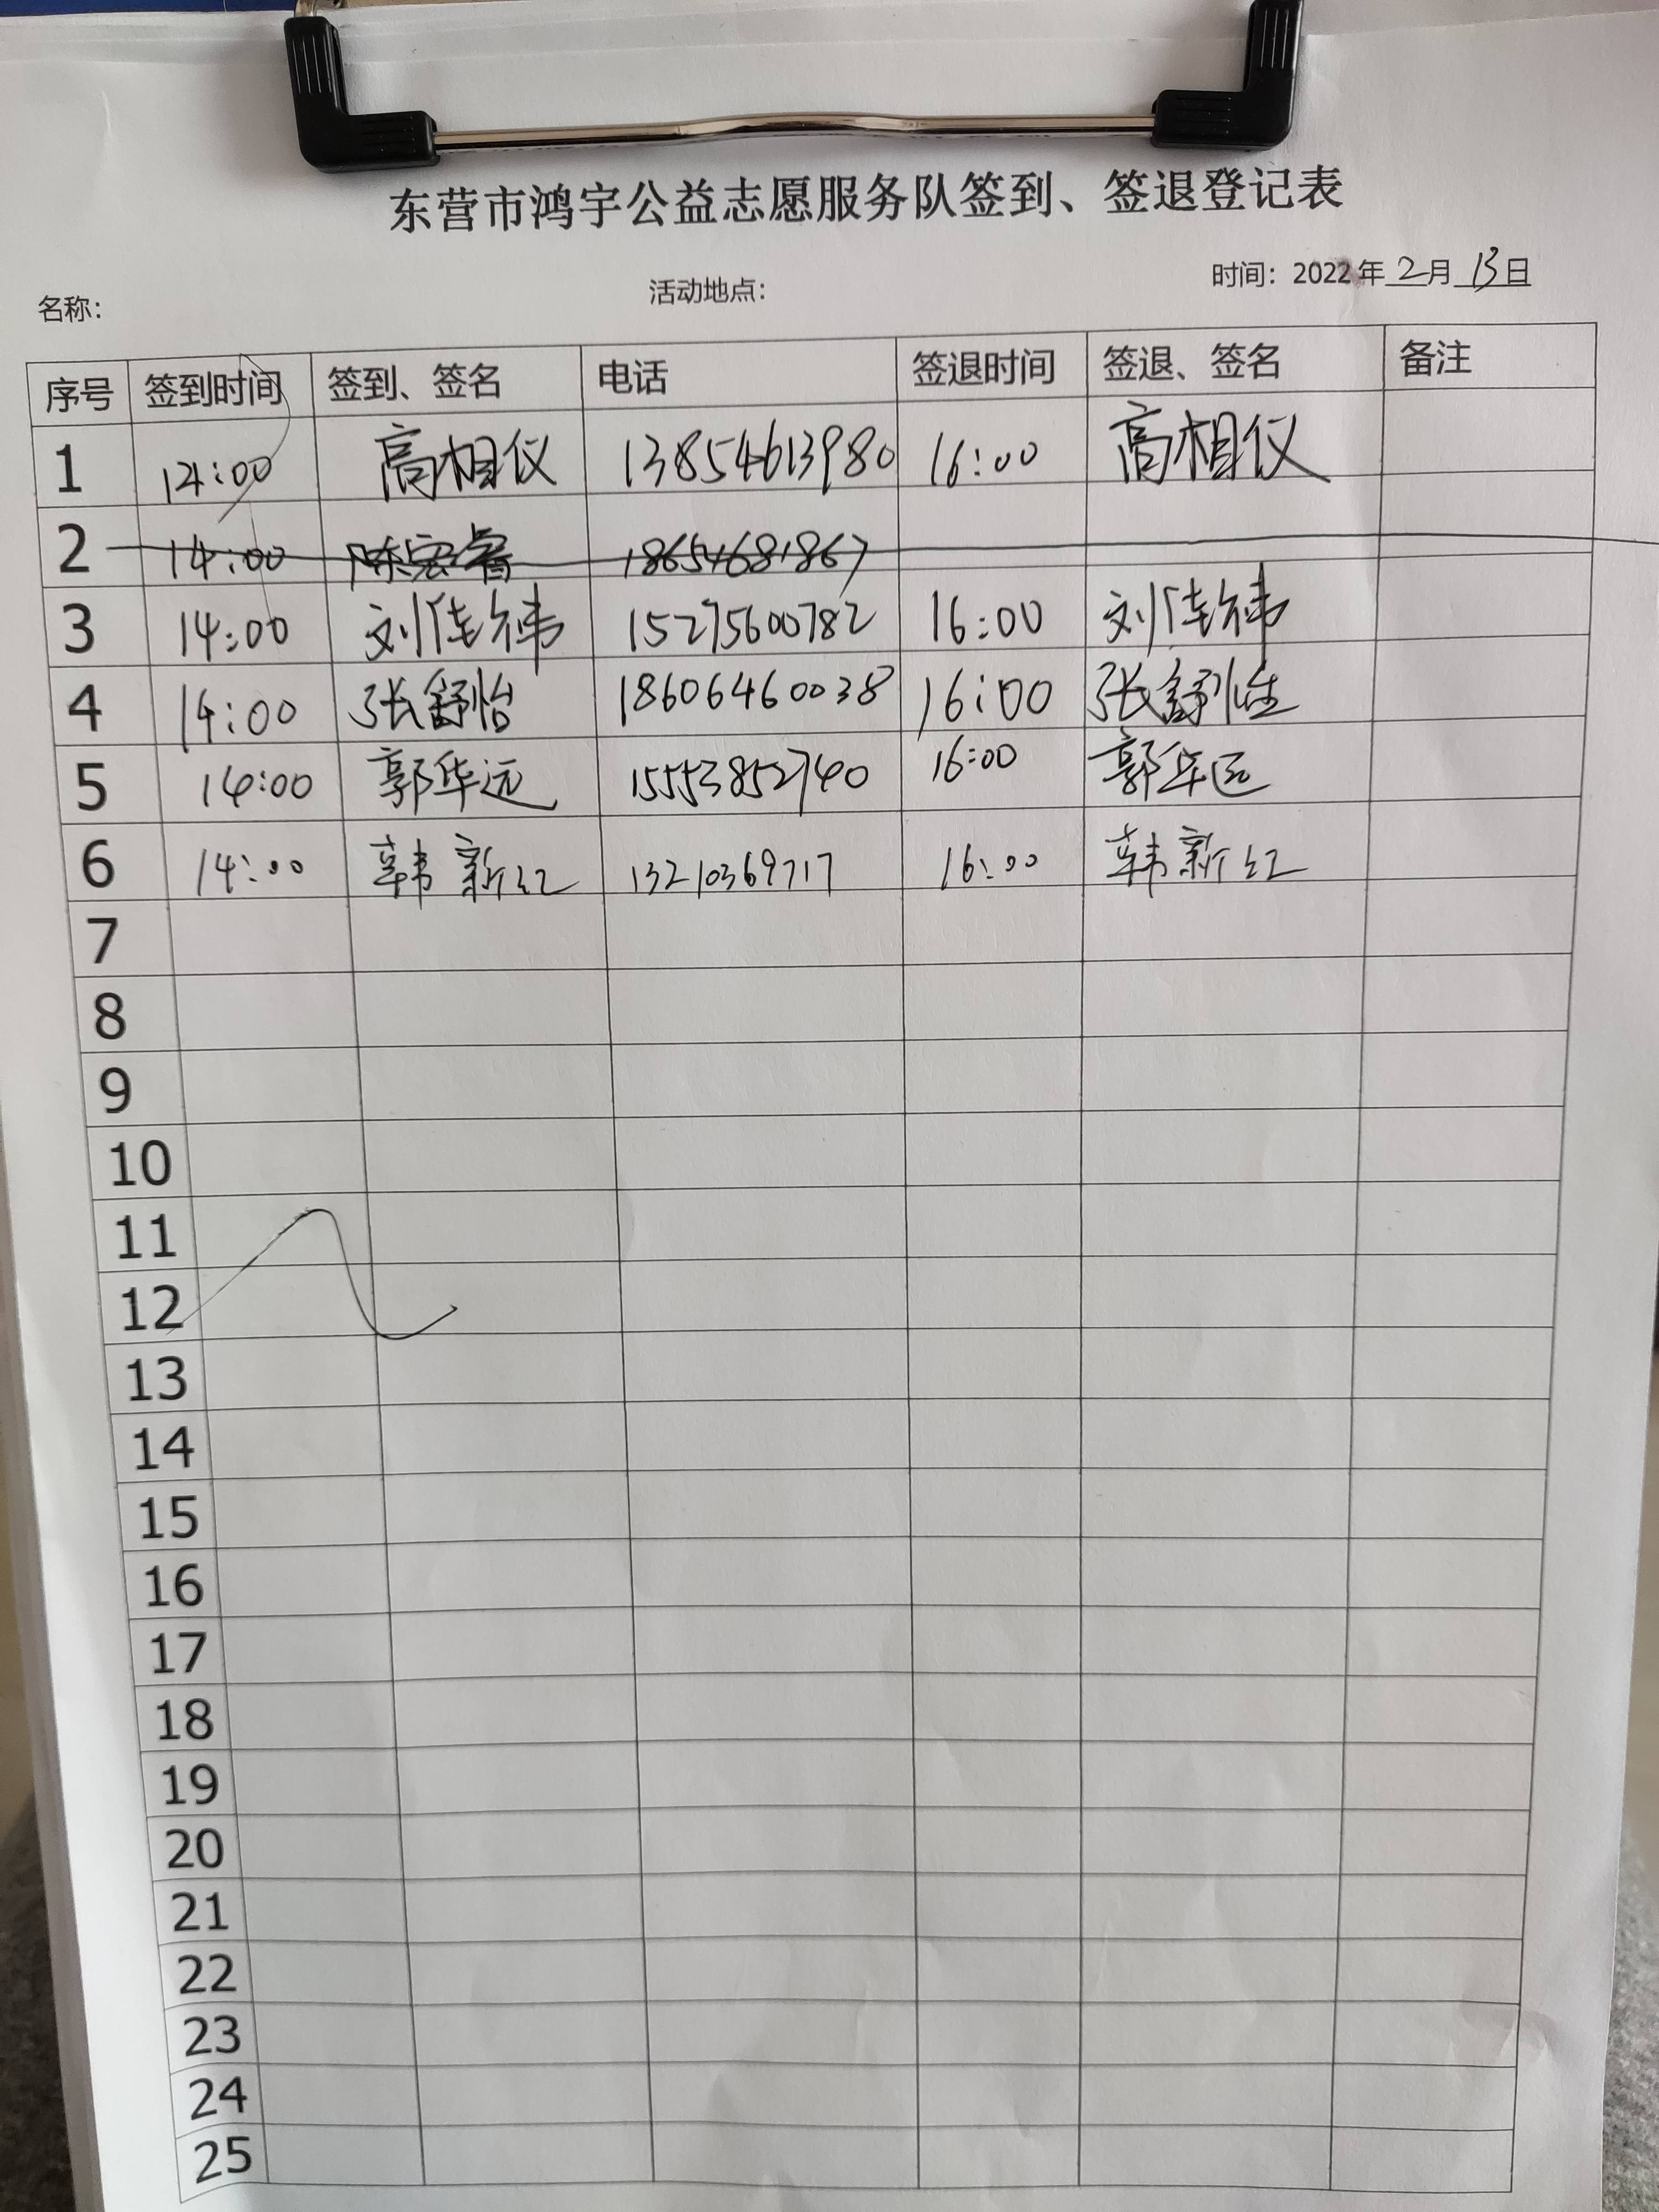 东营市鸿宇公益志愿服务队签到、签退登记表
名称： 活动地点： 时间：2022年2月13日
序号 签到时间 签到、签名 电话 签退时间 签退、签名 备注
1 14:00 高相仪 13854613980 16:00 高相仪
2 14:00 陈宏睿 18654681867
3 14:00 刘佳祎 15275600782 16:00 刘佳祎
4 14:00 张舒怡 18606460038 16:00 张舒怡
5 14:00 郭华远 15553852740 16:00 郭华远
6 14:00 韩新红 13210369717 16:00 韩新红
7
8
9
10
11
12
13
14
15
16
17
18
19
20
21
22
23
24
25